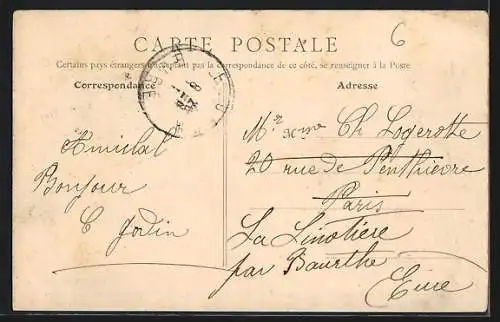 6
CARTE POSTALE
Certains pays étrangers n'acceptant pas la correspondance de ce côté, se renseigner à la Poste
Correspondance
Adresse
Amical
Bonjour
C Jodin
Mr Mme Ch Logerotte
20 rue de Penthièvre
Paris
La Linotière
par Bourthe
Eure